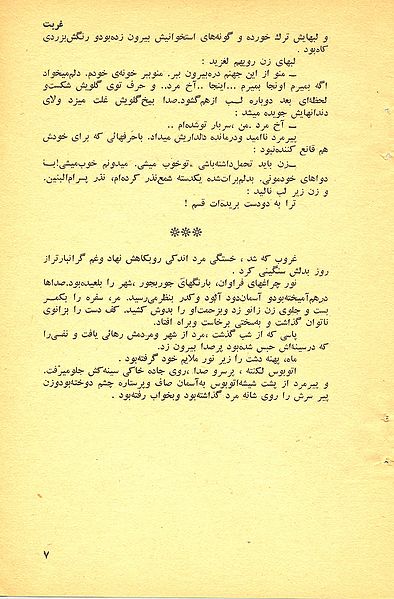 غربت
و لبهایش ترك خورده و گونه‌های استخوانیش بیرون زده‌بودو رنگش‌بزردی
کاه‌بود .
لبهای زن رویهم لغزید :
ــ منو از این جهنم دره‌بیرون ببر. منوببر خونه‌ی خودم. دلم‌میخواد
اگه بمیرم اونجا بمیرم ...اینجا ..آخ مرد.. و حرف توی گلویش شکست‌و
لحظه‌ای بعد دوباره لب ازهم‌گشود.صدا بیخ‌گلویش غلت میزد ولای
دندانهایش جویده میشد :
ــ آخ مرد .من ،سربار توشده‌ام ..
پیرمرد ناامید ودرمانده دلداریش میداد. باحرفهائی که برای خودش
هم قانع کننده‌نبود :
ــ‌زن باید تحمل‌داشته‌باشی .توخوب میشی. میدونم خوب‌میشی!با
دواهای خودمونی. بدلم‌برات‌شده یکدسته شمع‌نذر کرده‌ام، نذر پسرام‌البنین.
و زن زیر لب نالید :
ترا به دودست بریده‌ات قسم !
***
غروب که شد ، خستگی مرد اندکی روبکاهش نهاد وغم گرانبارتراز
روز بدلش سنگینی کرد .
نور چراغهای فراوان، بارنگهای جوربجور ،شهر را بلعیده‌بود.صداها
درهم‌آمیخته‌بودو آسمان‌دود آلود وکدر بنظرمی‌رسید. مرد، سفره را بکمر
بست و جلوی زن زانو زد وبزحمت‌او را بدوش کشید. کف دست را بزانوی
ناتوان گذاشت و به‌سختی برخاست وبراه افتاد.
پاسی که از شب گذشت ،مرد از شهر ومردمش رهائی یافت و نفسی‌را
که درسینه‌اش حبس شده‌بود پرصدا بیرون زد.
ماه، پهنه دشت را زیر نور ملایم خود گرفته‌بود .
اتوبوس لکنته ، پرسرو صدا ،روی جاده خاکی سینه‌کش جلومیرفت.
و پیرمرد از پشت شیشه‌اتوبوس به‌آسمان صاف وپرستاره چشم دوخته‌بودوزن
پیر سرش را روی شانه مرد گذاشته‌بود وبخواب رفته‌بود .
۷